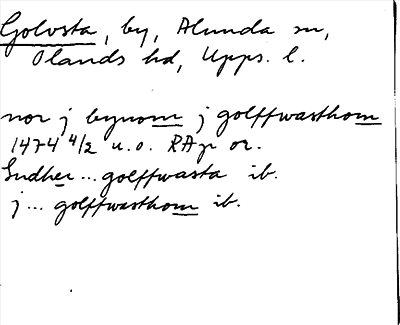 Golvsta, by, Alunda sn,
Olands hd, Upps. l.
nor j bynom j golffwasthom
1474 4/2 u.o. RAp or.
Sudher ... golffwasta ib.
j ... golffwasthom ib.